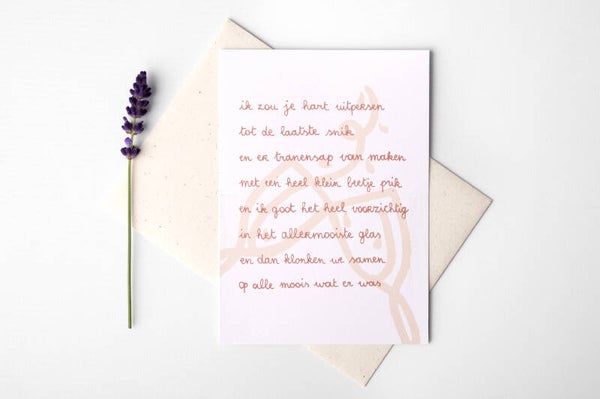 ik zou je hart uitpersen
tot de laatste snik
en er tranensap van maken
met een heel klein beetje prik
en ik goot het heel voorzichtig
in het allermooiste glas
en dan klonken we samen
op alle moois wat er was